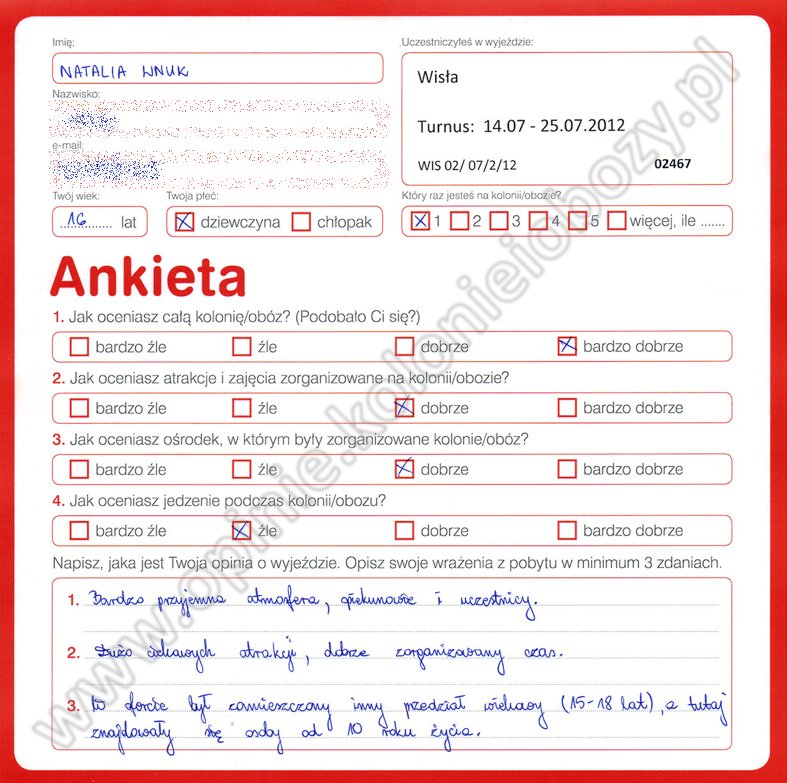 Imię:
NATALIA WNUK
Nazwisko:
e-mail:
Twój wiek:
16 lat
Twoja płeć:
dziewczyna chłopak
Uczestniczyłeś w wyjeździe:
Wisła
Turnus: 14.07 - 25.07.2012
WIS 02/ 07/2/12 02467
Który raz jesteś na kolonii/obozie?
1 2 3 4 5 więcej, ile .......
Ankieta
1. Jak oceniasz całą kolonię/obóz? (Podobało Ci się?)
bardzo źle źle dobrze bardzo dobrze
2. Jak oceniasz atrakcje i zajęcia zorganizowane na kolonii/obozie?
bardzo źle źle dobrze bardzo dobrze
3. Jak oceniasz ośrodek, w którym były zorganizowane kolonie/obóz?
bardzo źle źle dobrze bardzo dobrze
4. Jak oceniasz jedzenie podczas kolonii/obozu?
bardzo źle źle dobrze bardzo dobrze
Napisz, jaka jest Twoja opinia o wyjeździe. Opisz swoje wrażenia z pobytu w minimum 3 zdaniach.
1. Bardzo przyjemna atmosfera, opiekunowie i uczestnicy.
2. Dużo ciekawych atrakcji, dobrze zorganizowany czas.
3. W ofercie był zamieszczony inny przedział wiekowy (15-18 lat), a tutaj
znajdowały się osoby od 10 roku życia.
www.opinie.kolonieiobozy.pl